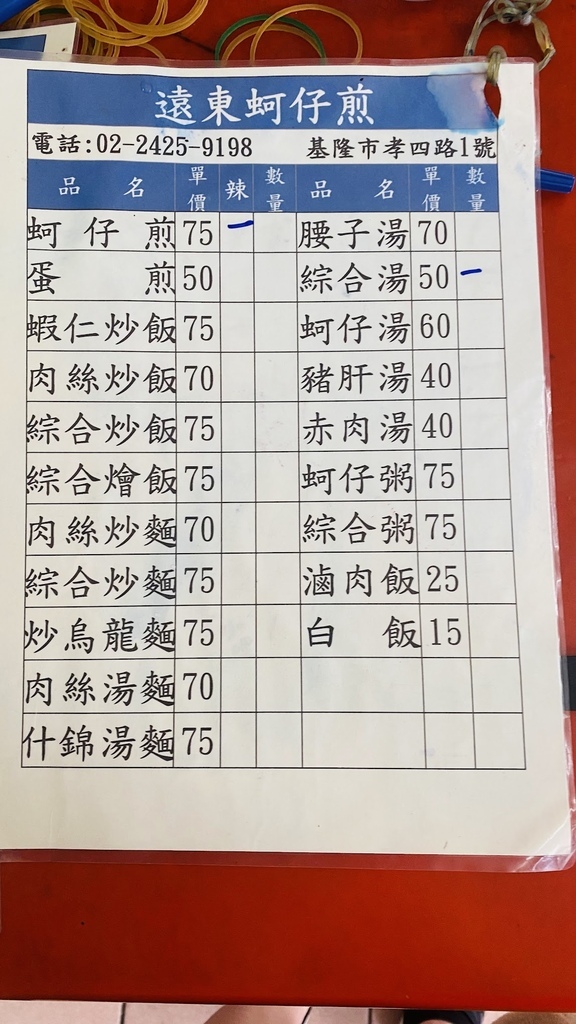 遠東蚵仔煎
電話:02-2425-9198 基隆市孝四路1號
品名 單價 辣 數量 品名 單價 數量
蚵仔煎 75 一 腰子湯 70
蛋煎 50 綜合湯 50 一
蝦仁炒飯 75 蚵仔湯 60
肉絲炒飯 70 豬肝湯 40
綜合炒飯 75 赤肉湯 40
綜合燴飯 75 蚵仔粥 75
肉絲炒麵 70 綜合粥 75
綜合炒麵 75 滷肉飯 25
炒烏龍麵 75 白飯 15
肉絲湯麵 70
什錦湯麵 75